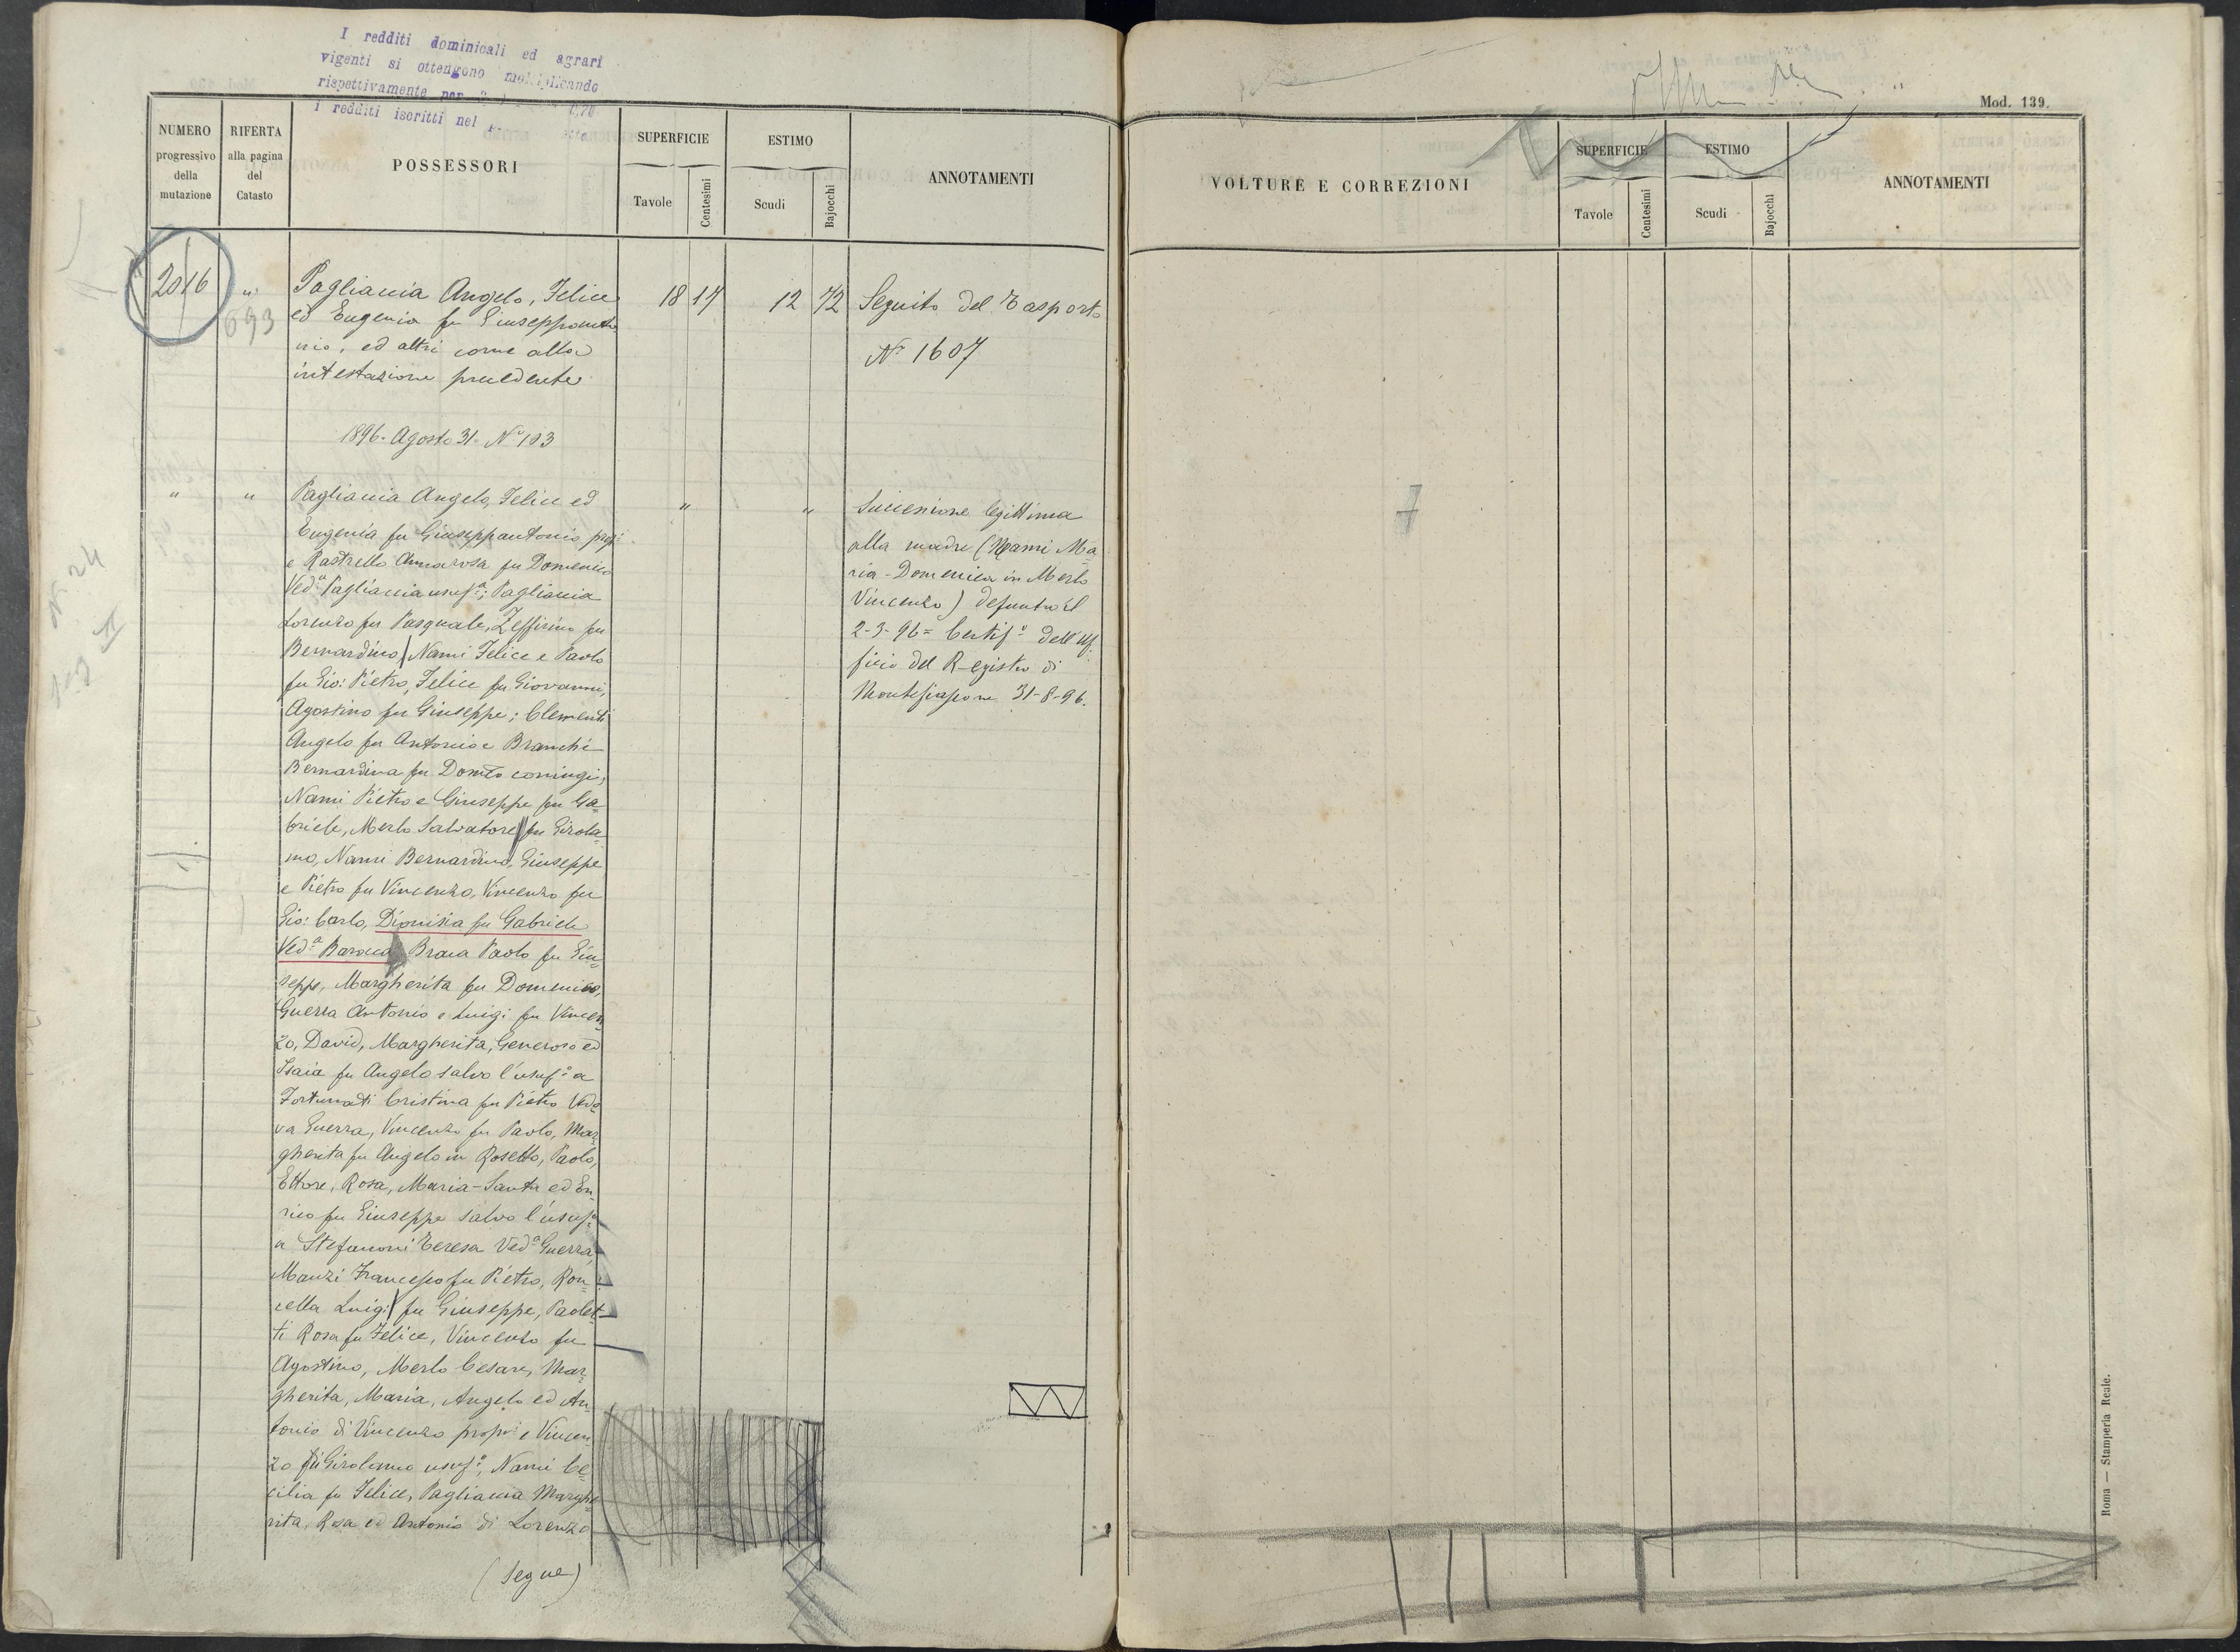 I redditi dominicali ed agrari
vigenti si ottengono moltiplicando
rispettivamente per
i redditi iscritti nel
Mod. 139.
NUMERO
progressivo
della
mutazione
RIFERTA
alla pagina
del
Catasto
POSSESSORI
SUPERFICIE
Tavole
Centesimi
ESTIMO
Scudi
Bajocchi
ANNOTAMENTI
VOLTURE E CORREZIONI
SUPERFICIE
Tavole
Centesimi
ESTIMO
Scudi
Bajocchi
ANNOTAMENTI
2016 " 693
Pagliaccia Angelo, Felice
ed Eugenia fu Giuseppanto
nio, ed altri come alla
intestazione precedente
18 17 12 72
Seguito del Trasporto
N° 1607
1896. Agosto 31. N° 103
" "
Pagliaccia Angelo, Felice ed
Eugenia fu Giuseppantonio propi
e Rastrello Annarosa fu Domenico
Ved.a Pagliaccia usuf.a; Pagliaccia
Lorenzo fu Pasquale, Zeffirino fu
Bernardino, Nami Felice e Paolo
fu Gio: Pietro, Felice fu Giovanni,
Agostino fu Giuseppe; Clementi
Angelo fu Antonio e Branchi
Bernardina fu Donato coniugi,
Nami Pietro e Giuseppe fu Ga=
briele, Merlo Salvatore fu Girola=
mo, Nami Bernardino, Giuseppe
e Pietro fu Vincenzo, Vincenzo fu
Gio: Carlo, Dionisia fu Gabriele
Ved.a Barocca Braca Paolo fu Giu=
seppe, Margherita fu Domenico,
Guerra Antonio e Luigi fu Vincen=
zo, David, Margherita, Generoso ed
Isaia fu Angelo salvo l'usuf.o a
Fortunati Cristina fu Pietro Vedo=
va Guerra, Vincenzo fu Paolo, Mar=
gherita fu Angelo in Rosetto, Paolo,
Ettore, Rosa, Maria-Santa ed En=
rico fu Giuseppe salvo l'usuf.o
a Stefanoni Teresa Ved.a Guerra,
Manzi Francesco fu Pietro, Ron=
cella Luigi fu Giuseppe, Paolet=
ti Rosa fu Felice, Vincenzo fu
Agostino, Merlo Cesare, Mar=
gherita, Maria, Angelo ed An=
tonio di Vincenzo propri e Vincen=
zo fu Girolamo usuf.o, Nami Ce=
cilia fu Felice, Pagliaccia Marghe=
rita, Rosa ed Antonio di Lorenzo
(segue)
" "
Successione legittima
alla madre (Nami Ma=
ria-Domenica in Merlo
Vincenzo) defunta il
2-3-96= Certif.o dell'Uf=
ficio del Registro di
Montefiascone 31-8-96.
N. 24
Roma — Stamperia Reale.